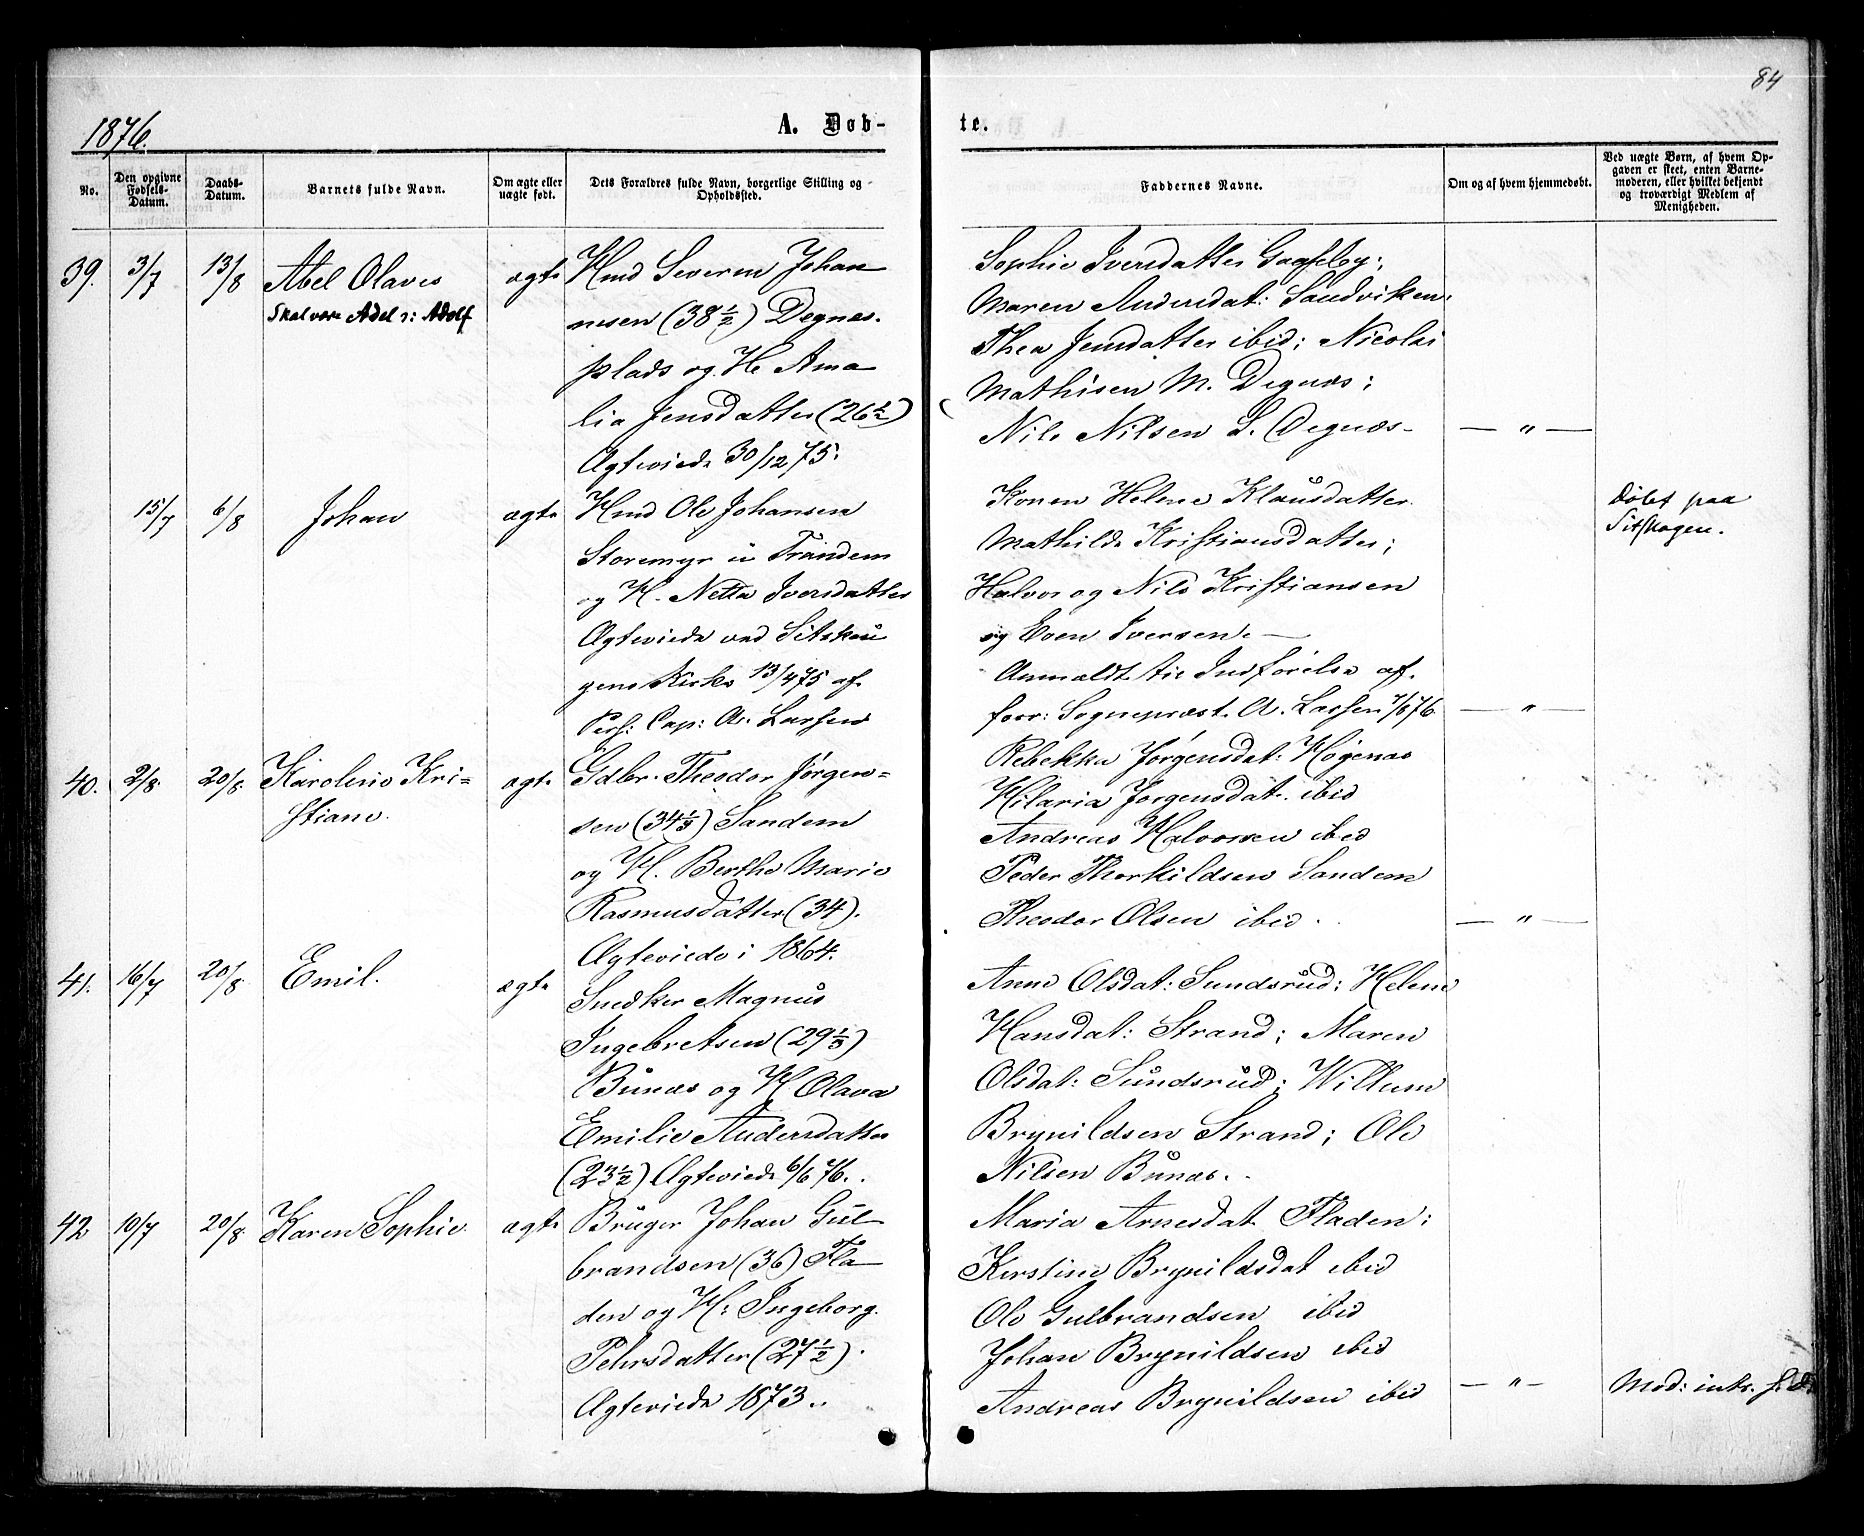 84
1876.
A. Døb-
te.
No.
Den opgivne Fødsels-Datum.
Daabs-Datum.
Barnets fulde Navn.
Om ægte eller uægte født.
Dets Forældres fulde Navn, borgerlige Stilling og Opholdssted.
Faddernes Navne.
Om og af hvem hjemmedøbt.
Ved uægte Børn, af hvem Op-
gaven er skeet, enten Barne-
moderen, eller hvilket bekjendt
og troværdigt Medlem af
Menigheden.
39. 3/7 13/8 Abel Olaves ægte
Skal være Adel : Adolf
Hmd Severin Johan
nesen (38 1/2) Degnæs-
plads og H. Ama
lia Jensdatter (26 1/2)
Ægteviede 30/12 75.
Sophie Iversdatter
Maren Andersdat: Sandviken.
Thea Jensdatter ibid; Nicolai
Mathisen M. Degnæs;
Nils Nilsen S. Degnæs - — " —
15/7 6/8 Johan ægte
Hmd Ole Johansen
Storemyr u Trandem
og H. Netta Iversdatter
Ægteviede ved Sitskou
gens Kirke 13/4 75 af
Pers: Cap: A. Larsen
Konen Helene Klausdatter
Mathilde Kristiansdatter;
Halvor og Nils Kristiansen
og Even Iversen. —
Anmeldt til Indførelse af
forr: Sognepræst A. Lassen 7/8 76 — " —
Døbt paa
Sitskogen.
40. 2/8. 20/8. Karoline Kri-
stiane. ægte
Gdbr. Theodor Jørgen-
sen (34 1/3) Sandem
og H. Berthe Marie
Rasmusdatter (34).
Ægteviede i 1864.
Rebekka Jørgensdat: Høgenæs
Hilaria Jørgensdat. ibid
Andreas Halvorsen ibid
Peder Thorkildsen Sandem
Theodor Olsen ibid. — " —
41. 16/7 20/8. Emil. ægte
Snedker Magnus
Ingebretsen (29 1/3)
Bunæs og H. Olava
Emilie Andersdatter
(23 1/2) Ægteviede 6/6 76.
Anne Olsdat: Sundsrud; Helene
Hansdat: Strand; Maren
Olsdat: Sundsrud; Willum
Brynildsen Strand; Ole
Nilsen Bunæs.
42 10/7 20/8. Karen Sophie. ægte
Bruger Johan Gul
brandsen (36) Fla
den og H: Ingeborg
Pehrsdatter (27 1/2).
Ægteviede 1873.
Maria Arnesdat Fladen;
Kirstine Brynildsdat ibid
Ole Gulbrandsen ibid
Johan Brynildsen ibid
Andreas Brynildsen ibid — " —
Mod: intr.